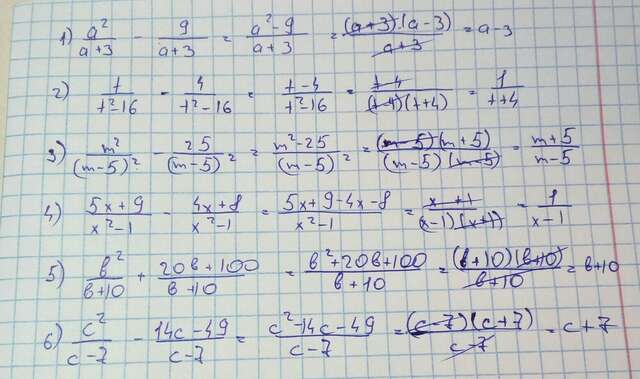 1) a²/(a+3) - 9/(a+3) = (a²-9)/(a+3) = (a+3)(a-3)/(a+3) = a-3
2) t/(t²-16) - 4/(t²-16) = (t-4)/(t²-16) = (t-4)/((t-4)(t+4)) = 1/(t+4)
3) m²/(m-5)² - 25/(m-5)² = (m²-25)/(m-5)² = (m-5)(m+5)/((m-5)(m-5)) = (m+5)/(m-5)
4) (5x+9)/(x²-1) - (4x+8)/(x²-1) = (5x+9-4x-8)/(x²-1) = (x+1)/((x-1)(x+1)) = 1/(x-1)
5) b²/(b+10) + (20b+100)/(b+10) = (b²+20b+100)/(b+10) = (b+10)(b+10)/(b+10) = b+10
6) c²/(c-7) - (14c-49)/(c-7) = (c²-14c-49)/(c-7) = (c-7)(c+7)/(c-7) = c+7